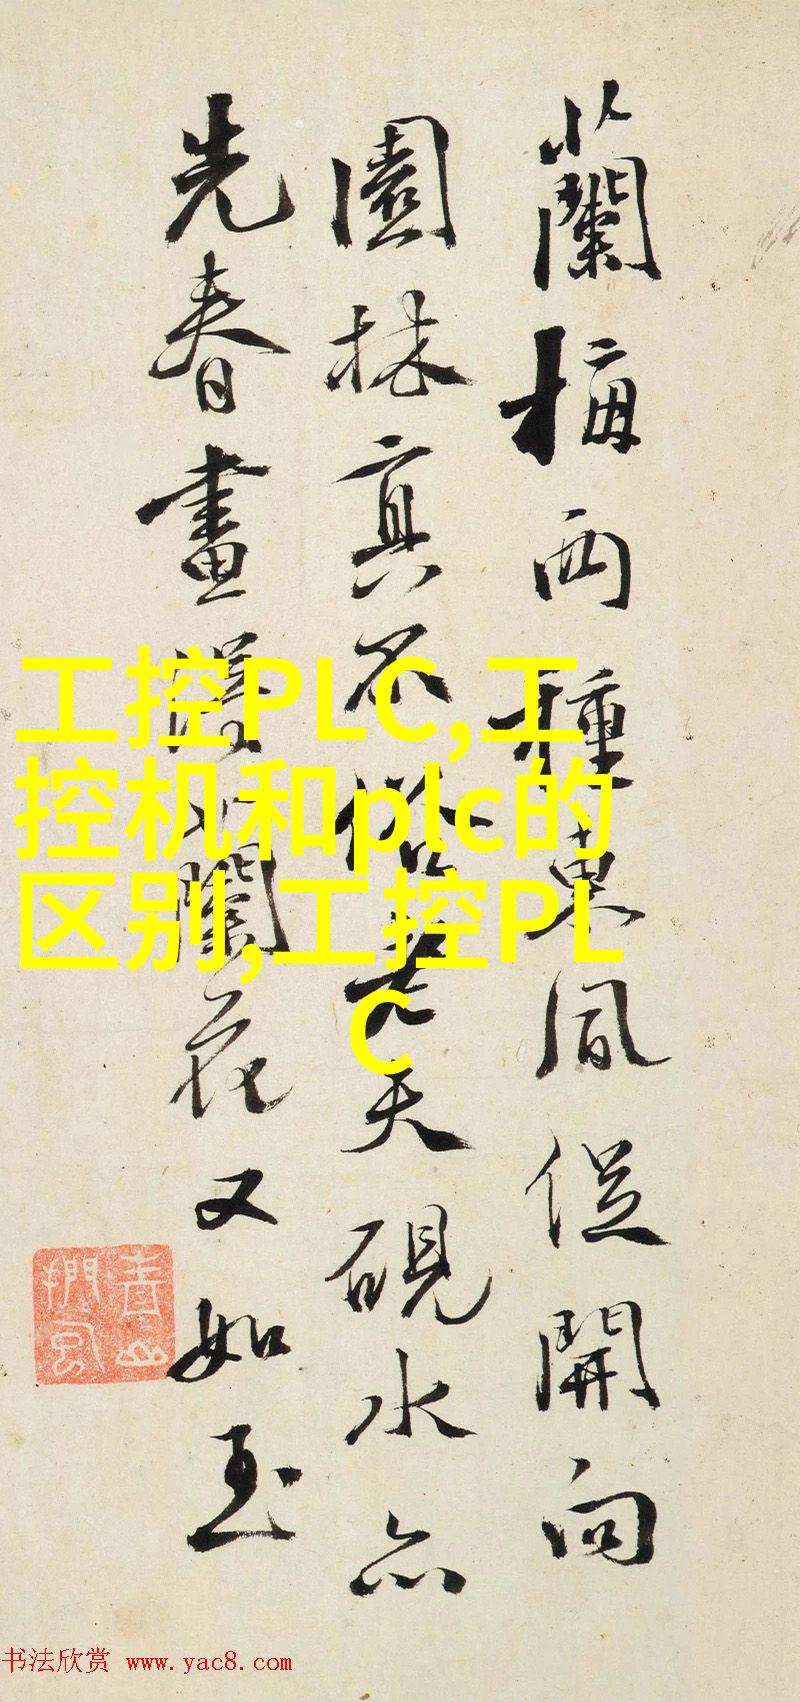 蘭梅两種東風從開向
園林真不俗老天硯水亦
先春畫得蘭花又如玉
工控PLC,工
控机和plc的
区别,工控PL
C
书法欣赏 www.yac8.com